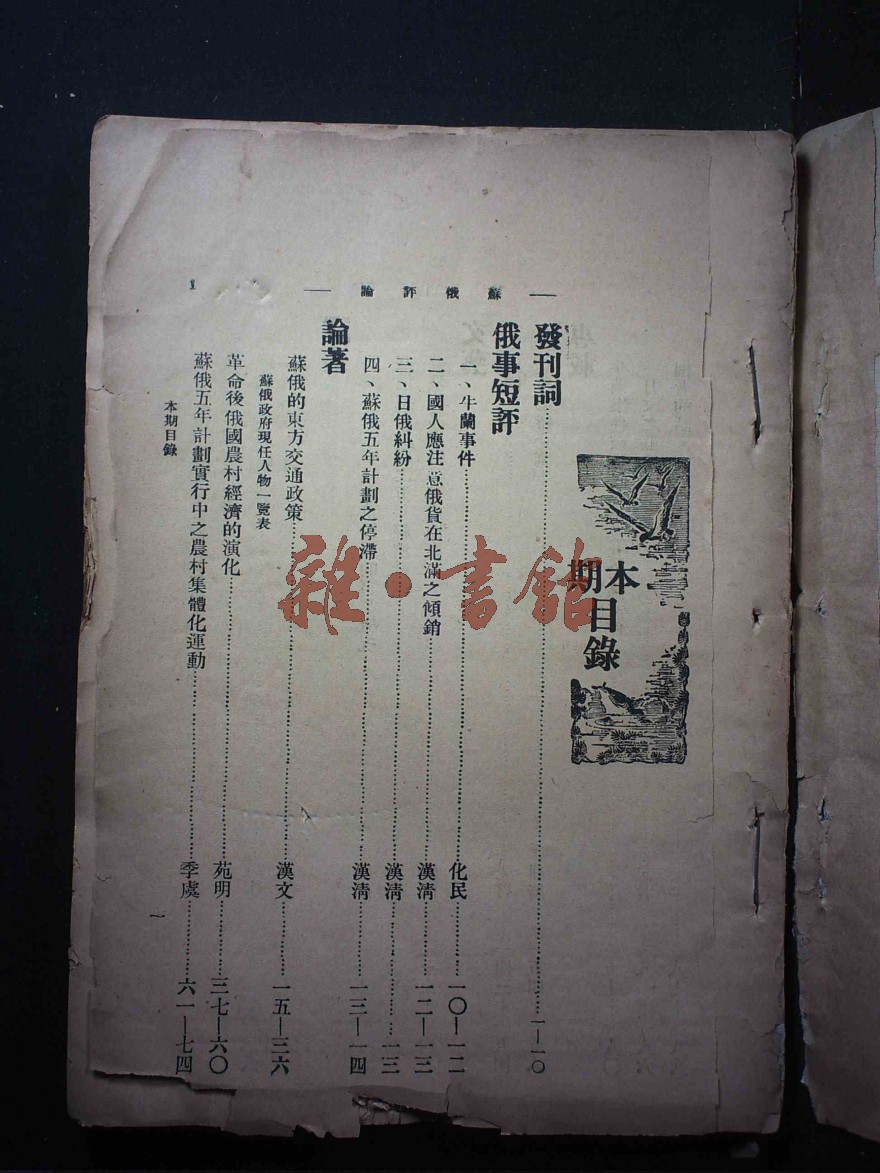 — 蘇俄評論 —
本期目錄
發刊詞……一—一〇
俄事短評
一、牛蘭事件……化民……一〇—一二
二、國人應注意俄貨在北滿之傾銷……漢清……一二—一三
三、日俄糾紛……漢清……一三
四、蘇俄五年計劃之停滯……漢清……一三—一四
論著
蘇俄的東方交通政策……漢文……一五—三六
蘇俄政府現任人物一覽表
革命後俄國農村經濟的演化……苑明……三七—六〇
蘇俄五年計劃實行中之農村集體化運動……季虞……六一—七四
本期目錄
一
雜·書館